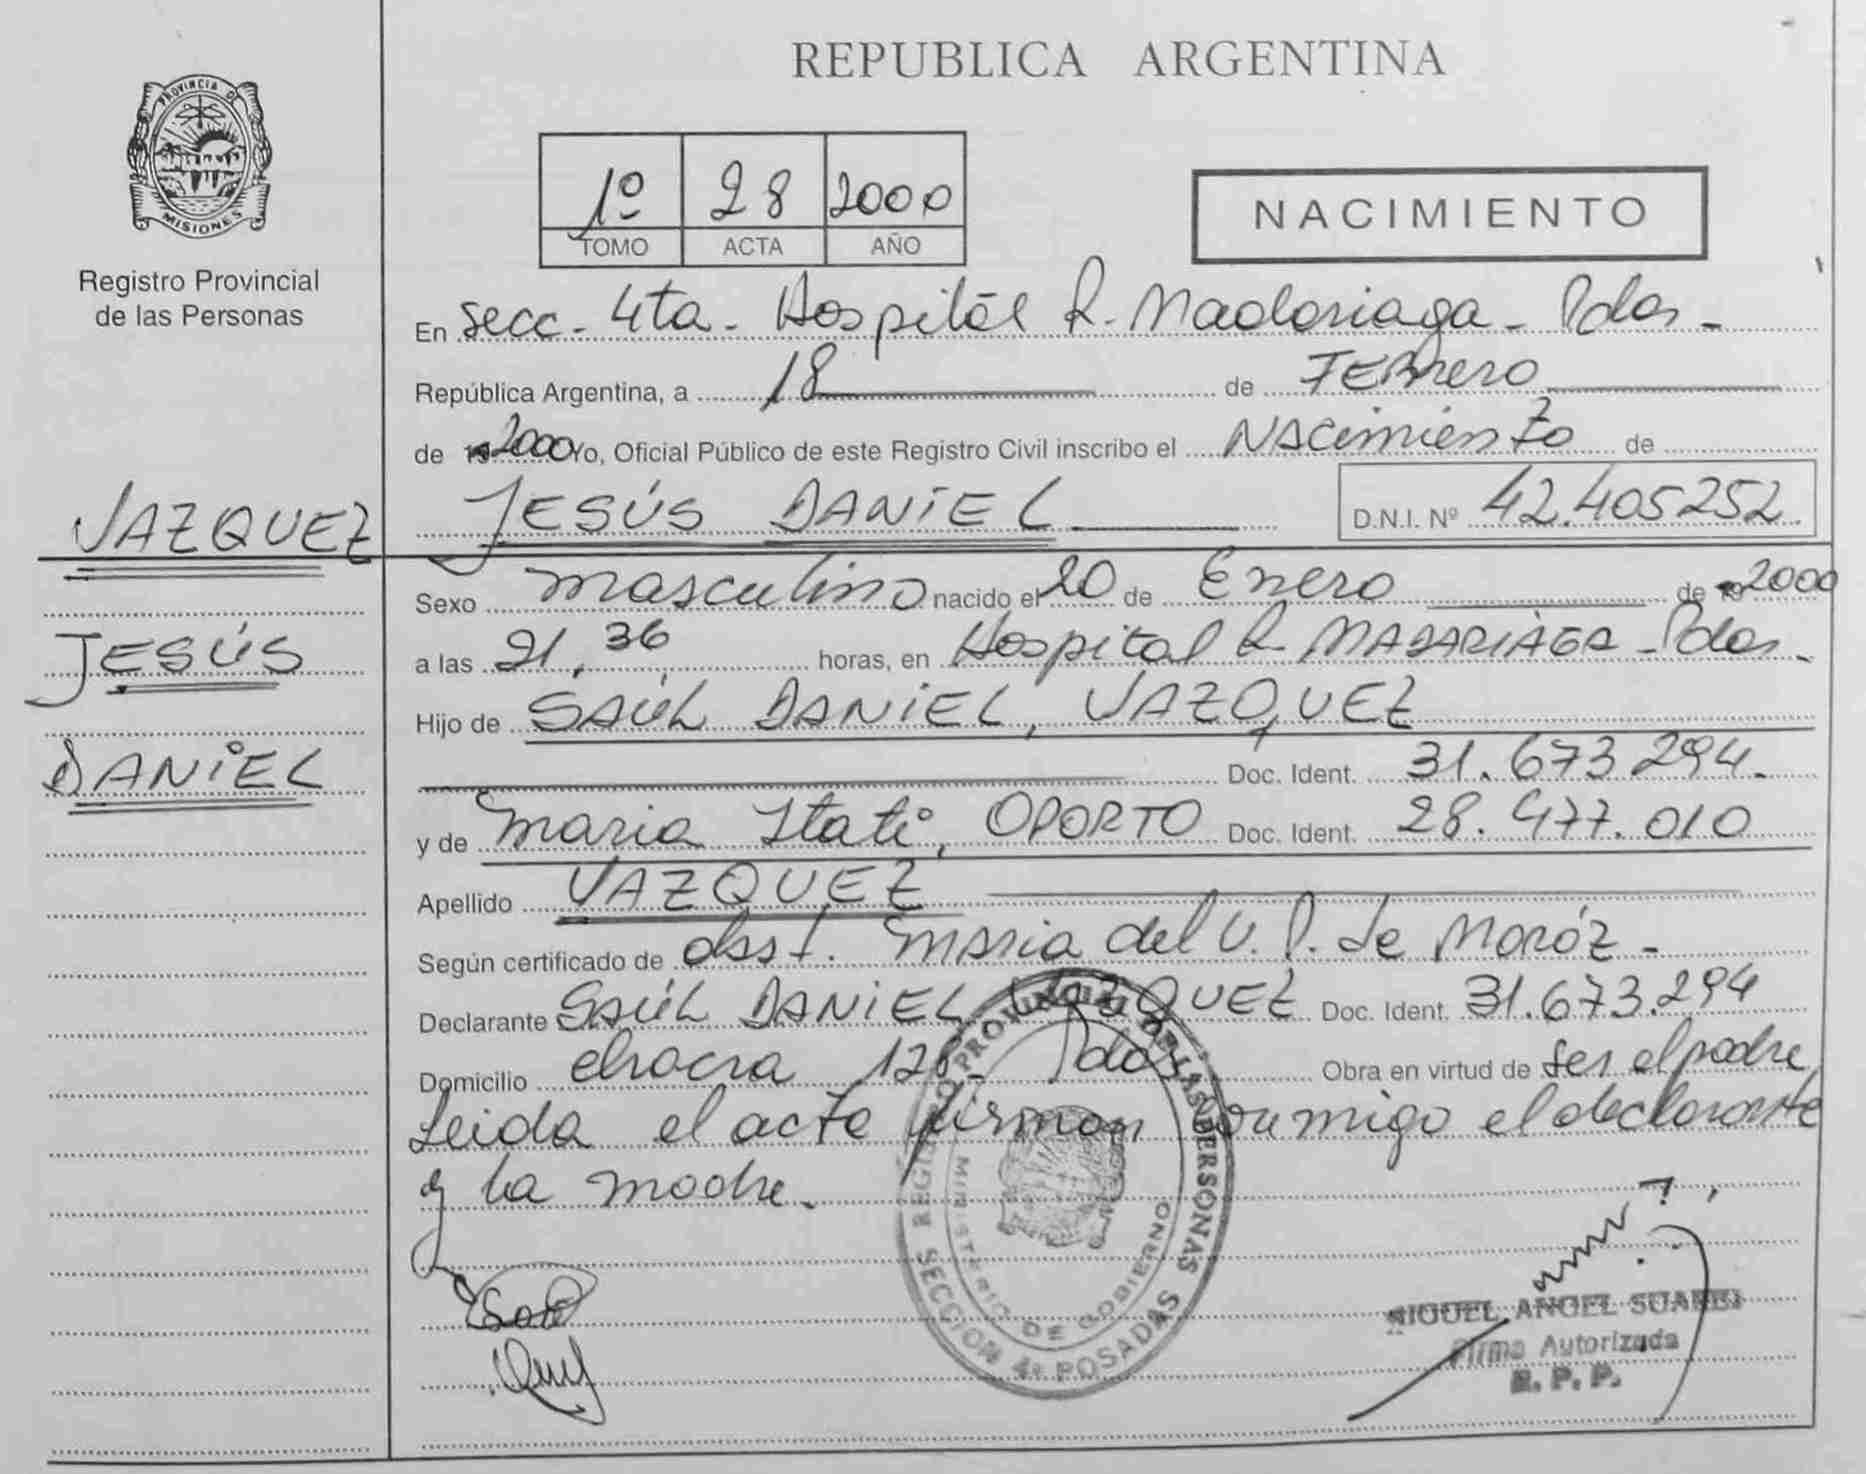 REPUBLICA ARGENTINA
PROVINCIA DE
MISIONES
Registro Provincial
de las Personas
1º 28 2000
TOMO ACTA AÑO
NACIMIENTO
En Secc. 4ta. Hospital R. Madariaga - Pdas -
República Argentina, a 18 de FEBrero
de 2000 Yo, Oficial Público de este Registro Civil inscribo el NAcimiento de
VAZQUEZ JESÚS DANIEL D.N.I. Nº 42.405252.
Sexo masculino nacido el 20 de Enero de 2000
JESÚS a las 21,36 horas, en Hospital R. MADARIAGA - Pdas.
Hijo de SAÚL DANIEL, VAZQUEZ
DANIEL Doc. Ident. 31.673.294.
y de Maria Itati, OPORTO Doc. Ident. 28.477.010
Apellido VAZQUEZ
Según certificado de obst. Maria del V. P. de Moróz -
Declarante SAÚL DANIEL VAZQUEZ Doc. Ident. 31.673.294
Domicilio chacra Pdas. Obra en virtud de ser el padre
Leida el acta firman conmigo el declarante
y la madre.
REGISTRO PROVINCIAL DE LAS PERSONAS
MINISTERIO DE GOBIERNO
SECCION 4ª POSADAS
MIGUEL ANGEL SUAREZ
Firma Autorizada
R. P. P.